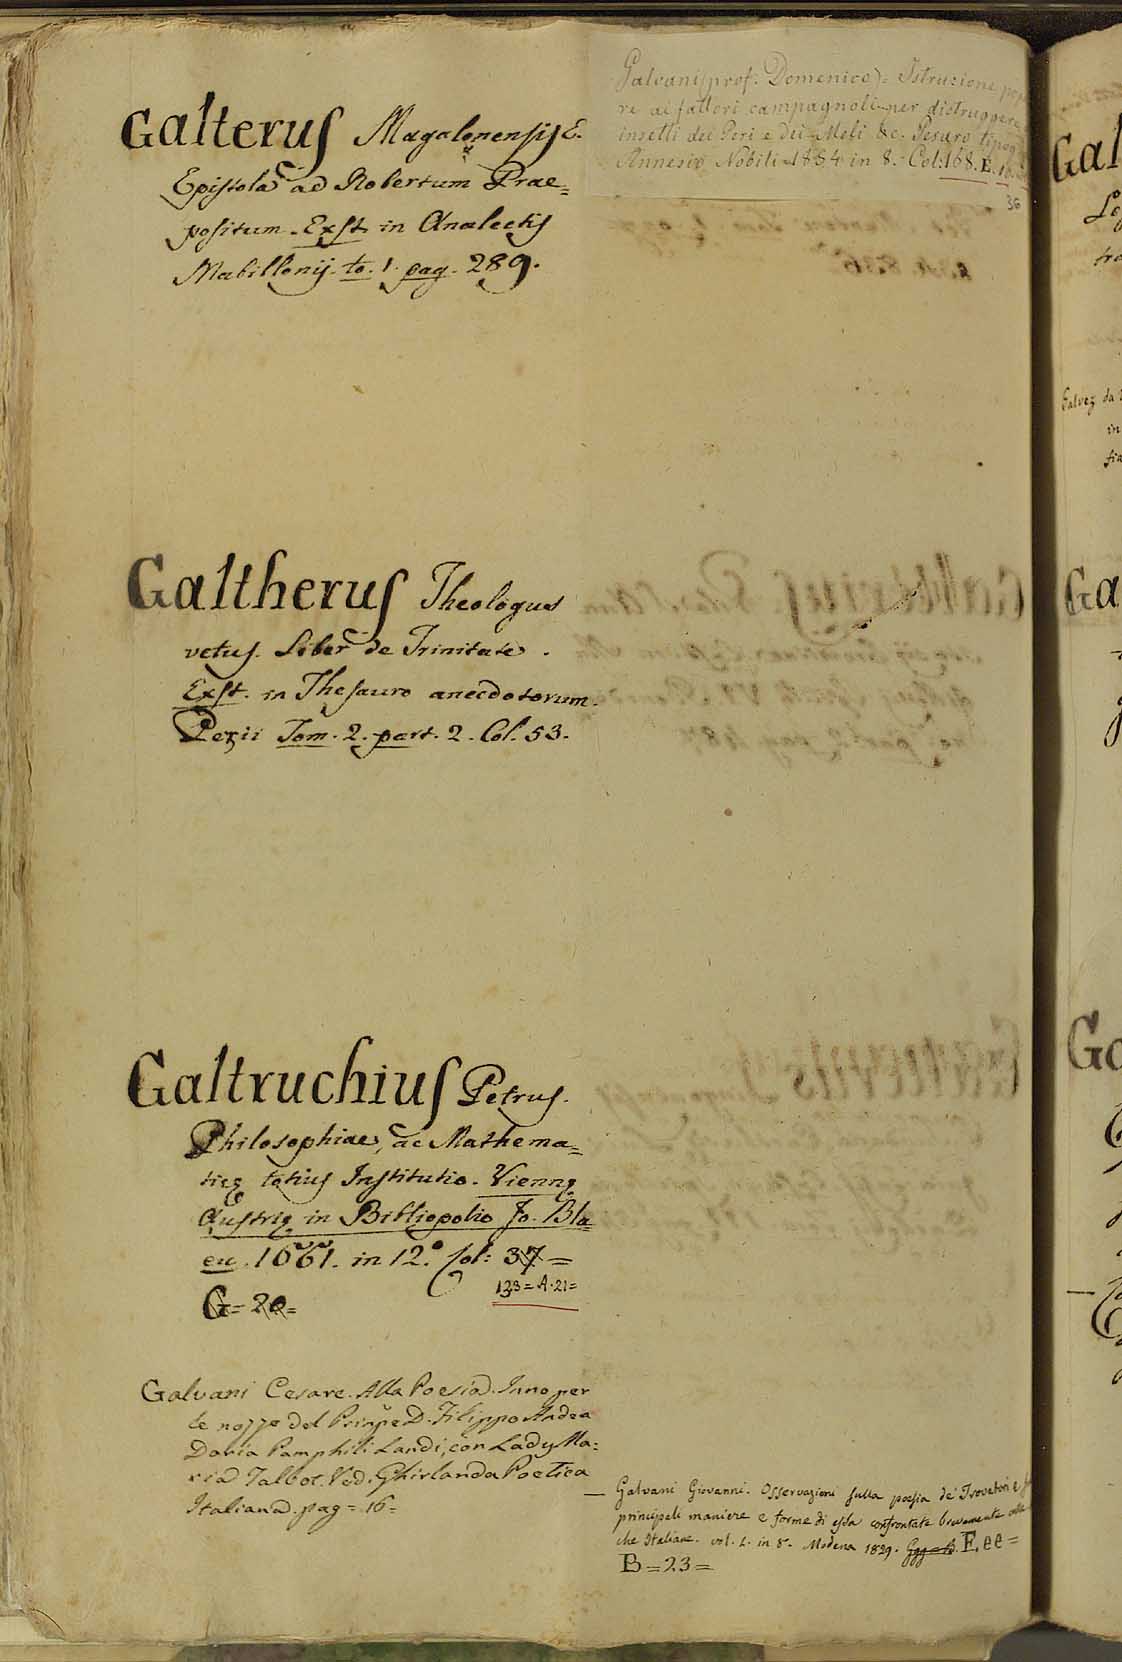 Galterus Magalonensis E.
Epistola ad Robertum Prae=
positum. Exst. in Analectis
Mabillonij. to. 1. pag. 289.
Galtherus Theologus
vetus. Liber de Trinitate.
Exst. in Thesauro anecdotorum.
Pezii Tom. 2. part. 2. Col. 53.
Galtruchius Petrus.
Philosophiae, ac Mathema=
ticę totius Institutio. Viennę
Austrię in Bibliopolio Jo. Bla
eu. 1661. in 12.° Col: 37=
133=A.21=
G=20=
Galvani Cesare. Alla Poesia. Inno per
le nozze del Principe D. Filippo Andrea
Doria Pamphili Landi, con Lady Ma=
ria Talbot. Ved. Ghirlanda Poetica
Italiana. pag=16=
Galvani (prof: Domenico)= Istruzione
re ai fattori campagnoli per distruggere
insetti dei Peri e dei Meli &c. Pesaro tipog
Annesio Nobili 1834 in 8. Col:168.E.
36
— Galvani Giovanni. Osservazioni sulla poesia de' Trovatori e
principali maniere e forme di essa confrontate brevemente
che Italiane. vol. 1. in 8. Modena 1829. F,ee=
B=23=
Gal
tro
Galvez da
in
Ga